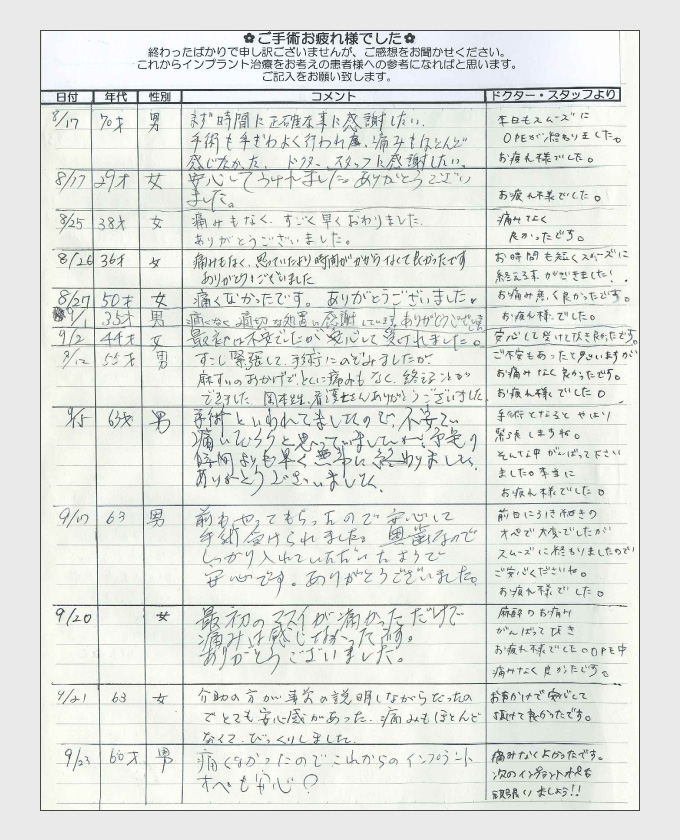 ✿ご手術お疲れ様でした✿
終わったばかりで申し訳ございませんが、ご感想をお聞かせください。
これからインプラント治療をお考えの患者様への参考になればと思います。
ご記入をお願い致します。
日付 年代 性別 コメント ドクター・スタッフより
8/17 70才 男 まず時間に正確な事に感謝したい。
手術も手ぎわよく行われ、痛みもほとんど
感じなかった。ドクター、スタッフに感謝したい。
本日もスムーズに
OPEが終わりました。
お疲れ様でした。
8/17 29才 女 安心してうけれました。ありがとうござい
ました。
お疲れ様でした。
8/25 38才 女 痛みもなく、すごく早くおわりました。
ありがとうございました。
痛みなく
良かったです。
8/26 36才 女 痛みもなく、思っていたより時間がかからなくて良かったです
ありがとうございました
お時間も短くスムーズに
終える事ができました!
8/27 50才 女 痛くなかったです。ありがとうございました♥
お痛み無く良かったです。
9/1 35才 男 痛くなく適切な処置に感謝しています。ありがとうございます
お疲れ様でした。
9/2 44才 女 最初は不安でしたが安心して受けれました。
安心して受けて頂き良かったです。
9/12 55才 男 すこし緊張して、手術にのぞみましたが
麻すいのおかげで、とくに痛みもなく、終えることが
できました。岡本先生、看護士さんありがとうございました。
ご不安もあったと思いますが
お痛みなく良かったです。
お疲れ様でした。
9/15 63才 男 手術といわれてましたので、不安で
痛いだろうと思っていましたが、予定の
時間よりも早く無事に終わりました。
ありがとうございました。
手術となるとやはり
緊張しますね。
そんな中がんばって下さい
ました。本当に
お疲れ様でした。
9/17 63 男 前もやってもらったので安心して
手術受けられました。奥歯なので
しっかり入れていただいたようで
安心です。ありがとうございました。
前日に引き続きの
オペで大変でしたが
スムーズに終わりましたので
ご安心くださいね。
お疲れ様でした。
9/20 女 最初のマスイが痛かっただけで
痛みは感じなかったです。
ありがとうございました。
麻酔のお痛み
がんばって頂き
お疲れ様でした。OPE中
痛みなく良かったです。
9/21 63 女 介助の方が事前の説明しながらだったの
でとても安心感があった。痛みもほとんど
なくて、びっくりしました。
お声かけで安心して
頂けて良かったです。
9/23 60才 男 痛くなかったのでこれからのインプラント
オペも安心♡
痛みなくよかったです。
次のインプラントオペも
頑張りましょう!!